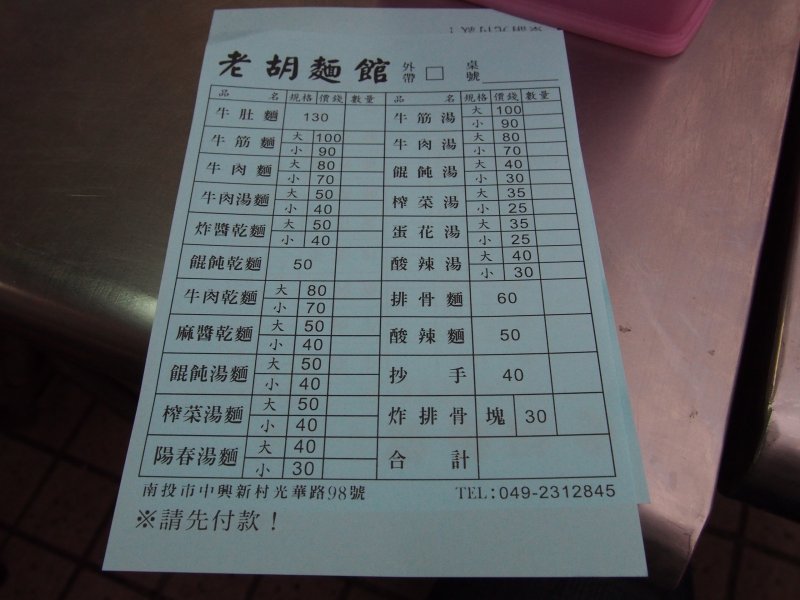 老胡麵館 外帶 □ 桌號
品名 規格 價錢 數量 品名 規格 價錢 數量
牛肚麵 130 牛筋湯 大 100 小 90
牛筋麵 大 100 小 90 牛肉湯 大 80 小 70
牛肉麵 大 80 小 70 餛飩湯 大 40 小 30
牛肉湯麵 大 50 小 40 榨菜湯 大 35 小 25
炸醬乾麵 大 50 小 40 蛋花湯 大 35 小 25
餛飩乾麵 50 酸辣湯 大 40 小 30
牛肉乾麵 大 80 小 70 排骨麵 60
麻醬乾麵 大 50 小 40 酸辣麵 50
餛飩湯麵 大 50 小 40 抄手 40
榨菜湯麵 大 50 小 40 炸排骨 塊 30
陽春湯麵 大 40 小 30 合計
南投市中興新村光華路98號 TEL:049-2312845
※請先付款!